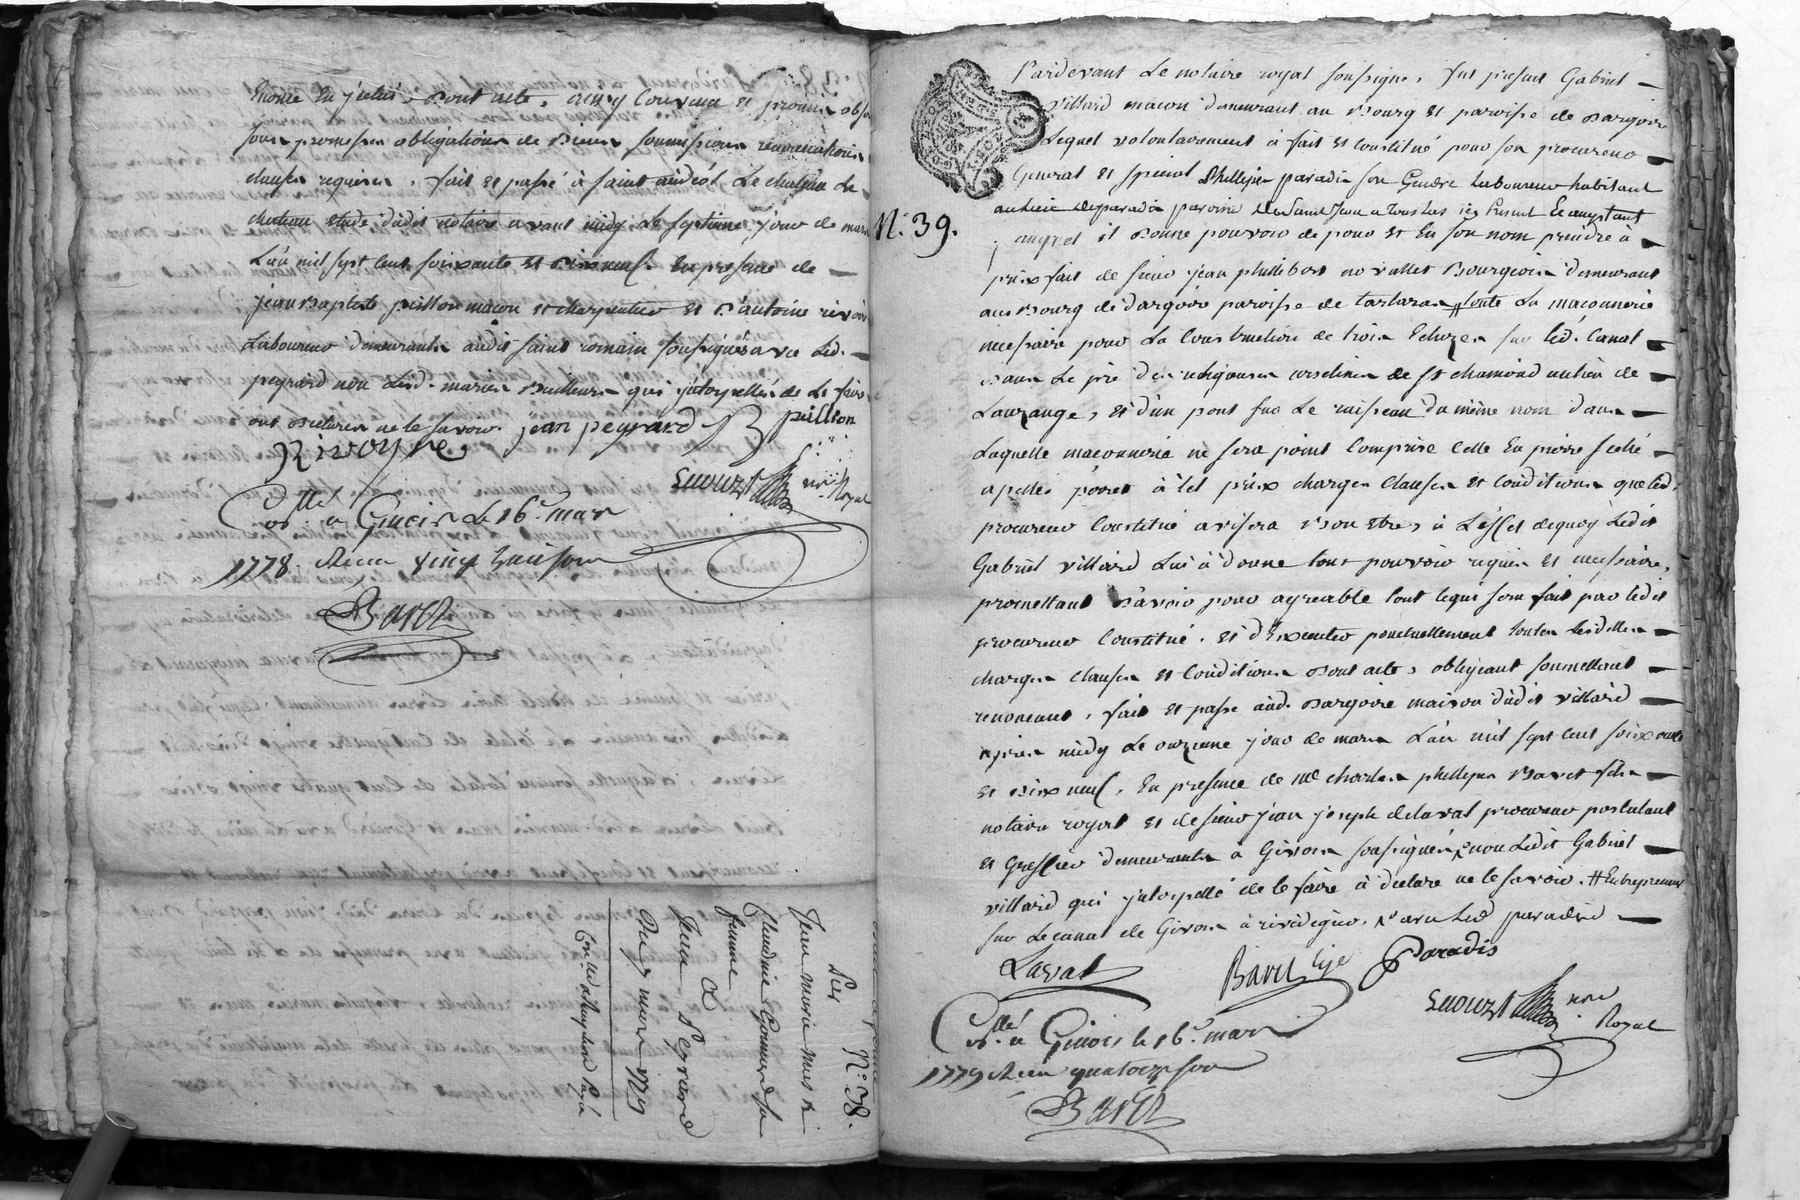 Encore En jcelui. Dont acte. ainsy Convenu et promis obs
sous promesses obligations de Biens soumissions renonciations
clauses requises, fait et passé à saint andéol Le chateau Le
chateau Etude dudit notaire avant midy Le septieme jour de mars
L'an mil sept cent soixante et Dix neuf. En presence de
jean Baptiste puillion macon et charpentier et D'antoine rivoire
Laboureur demeurants audit saint romain soussignés avec Led.
peyrard non Lesd. mariés Bailleurs qui jnterpellés de Le faire
ont declarés ne le savoir. jean peyrard puillion
Rivoyre
not. Royal
Collé à Givors Le 16e mars
1778. Recu
Baret
Du
N.° 38.
Jean marie
Claudine
femme
à
Jean Peyrard
Du 7 mars 1779
N.° 39.
Pardevant Le notaire royal soussigné, fut present Gabriel
villard macon demeurant au Bourg et paroisse de Dargoire
Lequel volontairement à fait et Constitué pour son procureur
General et special Phillipe paradis son Gendre Laboureur habitant
au Lieu de paradis paroisse de saint Jean a Touslas icy Present Et acceptant
auquel il Donne pouvoir de pour et En son nom prendre à
prix fait de sieur jean phillibert novallet Bourgeois demeurant
au Bourg de dargoire paroisse de tartaras # toute La maconnerie
necessaire pour La Construction de trois Ecluzes sur Led. Canal
Dans Le pré des religieuses urselines de St chamond au lieu de
Laurange, et d'un pont sur Le ruisseau du même nom dans
Laquelle maconnerie ne sera point Comprise Celle En pierre seche
apellés pérret à tel prix charges Clauses et Conditions que led.
procureur Constitué avisera Bon être, à L'effet dequoy Ledit
Gabriel villard Lui à donne tout pouvoir requis et necessaire,
promettant D'avoir pour agreable tout ce qui sera fait par ledit
procureur Constitué. et d'Executer ponctuellement toutes Lesdittes
charges Clauses et Conditions Dont acte, obligeant soumettant
renoncant, fait et passé aud. Dargoire maison dudit villard
apres midy Le onzieme jour de mars L'an mil sept cent soixante
et Dix neuf, En presence de Me charles phillipe Baret fils
notaire royal et de sieur jean joseph delaval procureur postulant
et Greffier demeurants à Givors soussignés, non Ledit Gabriel
villard qui jnterpellé de le faire à declaré ne le savoir. # Entrepreneur
sur Le canal de Givors à rivedegier. avec Led paradis
Laval Baret fils Paradis
not. Royal
Collé à Givors le 16e mars
1779 Recu quatorze sous
Baret